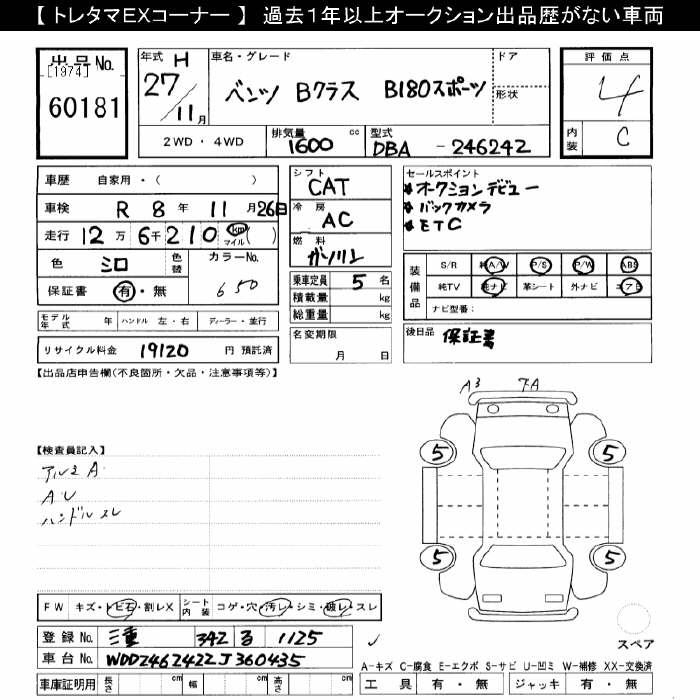 【 トレタマEXコーナー 】 過去１年以上オークション出品歴がない車両
出品No.
[1974]
60181
年式 H
27/11月
車名・グレード
ベンツ Bクラス B180スポーツ
ドア
形状
評価点
4
内装 C
2WD・4WD
排気量 1600 cc
型式 DBA - 246242
車歴 自家用・( )
車検 R 8年 11月 26日
走行 12万 6千 210 km マイル ( )
色 シロ
色替
カラーNo. 650
保証書 有・無
シフト
CAT
冷房
AC
燃料
ガソリン
乗車定員 5 名
積載量 kg
総重量 kg
セールスポイント
★オークションデビュー
★バックカメラ
★ETC
装備品
S/R 純A/W P/S P/W ABS
純TV 純ナビ 革シート 外ナビ エアB
ナビ型番:
モデル年式 年 ハンドル 左・右 ディーラー・並行
リサイクル料金 19120 円 預託済
名変期限
月 日
後日品 保証書
【出品店申告欄(不良箇所・欠品・注意事項等)】
A3
【検査員記入】
アルミ A
AU
ハンドル スレ
5
5
5
5
FW キズ・トビ石・割レX
シート内装 コゲ・穴・汚レ・シミ・破レ・スレ
登録No. 三重 342 る 1125
車台No. WDD2462422J360435
車庫証明用 長さ cm 幅 cm 高さ cm
スペア
A-キズ C-腐食 E-エクボ S-サビ U-凹ミ W-補修 XX-交換済
工具 有・無 ジャッキ 有・無